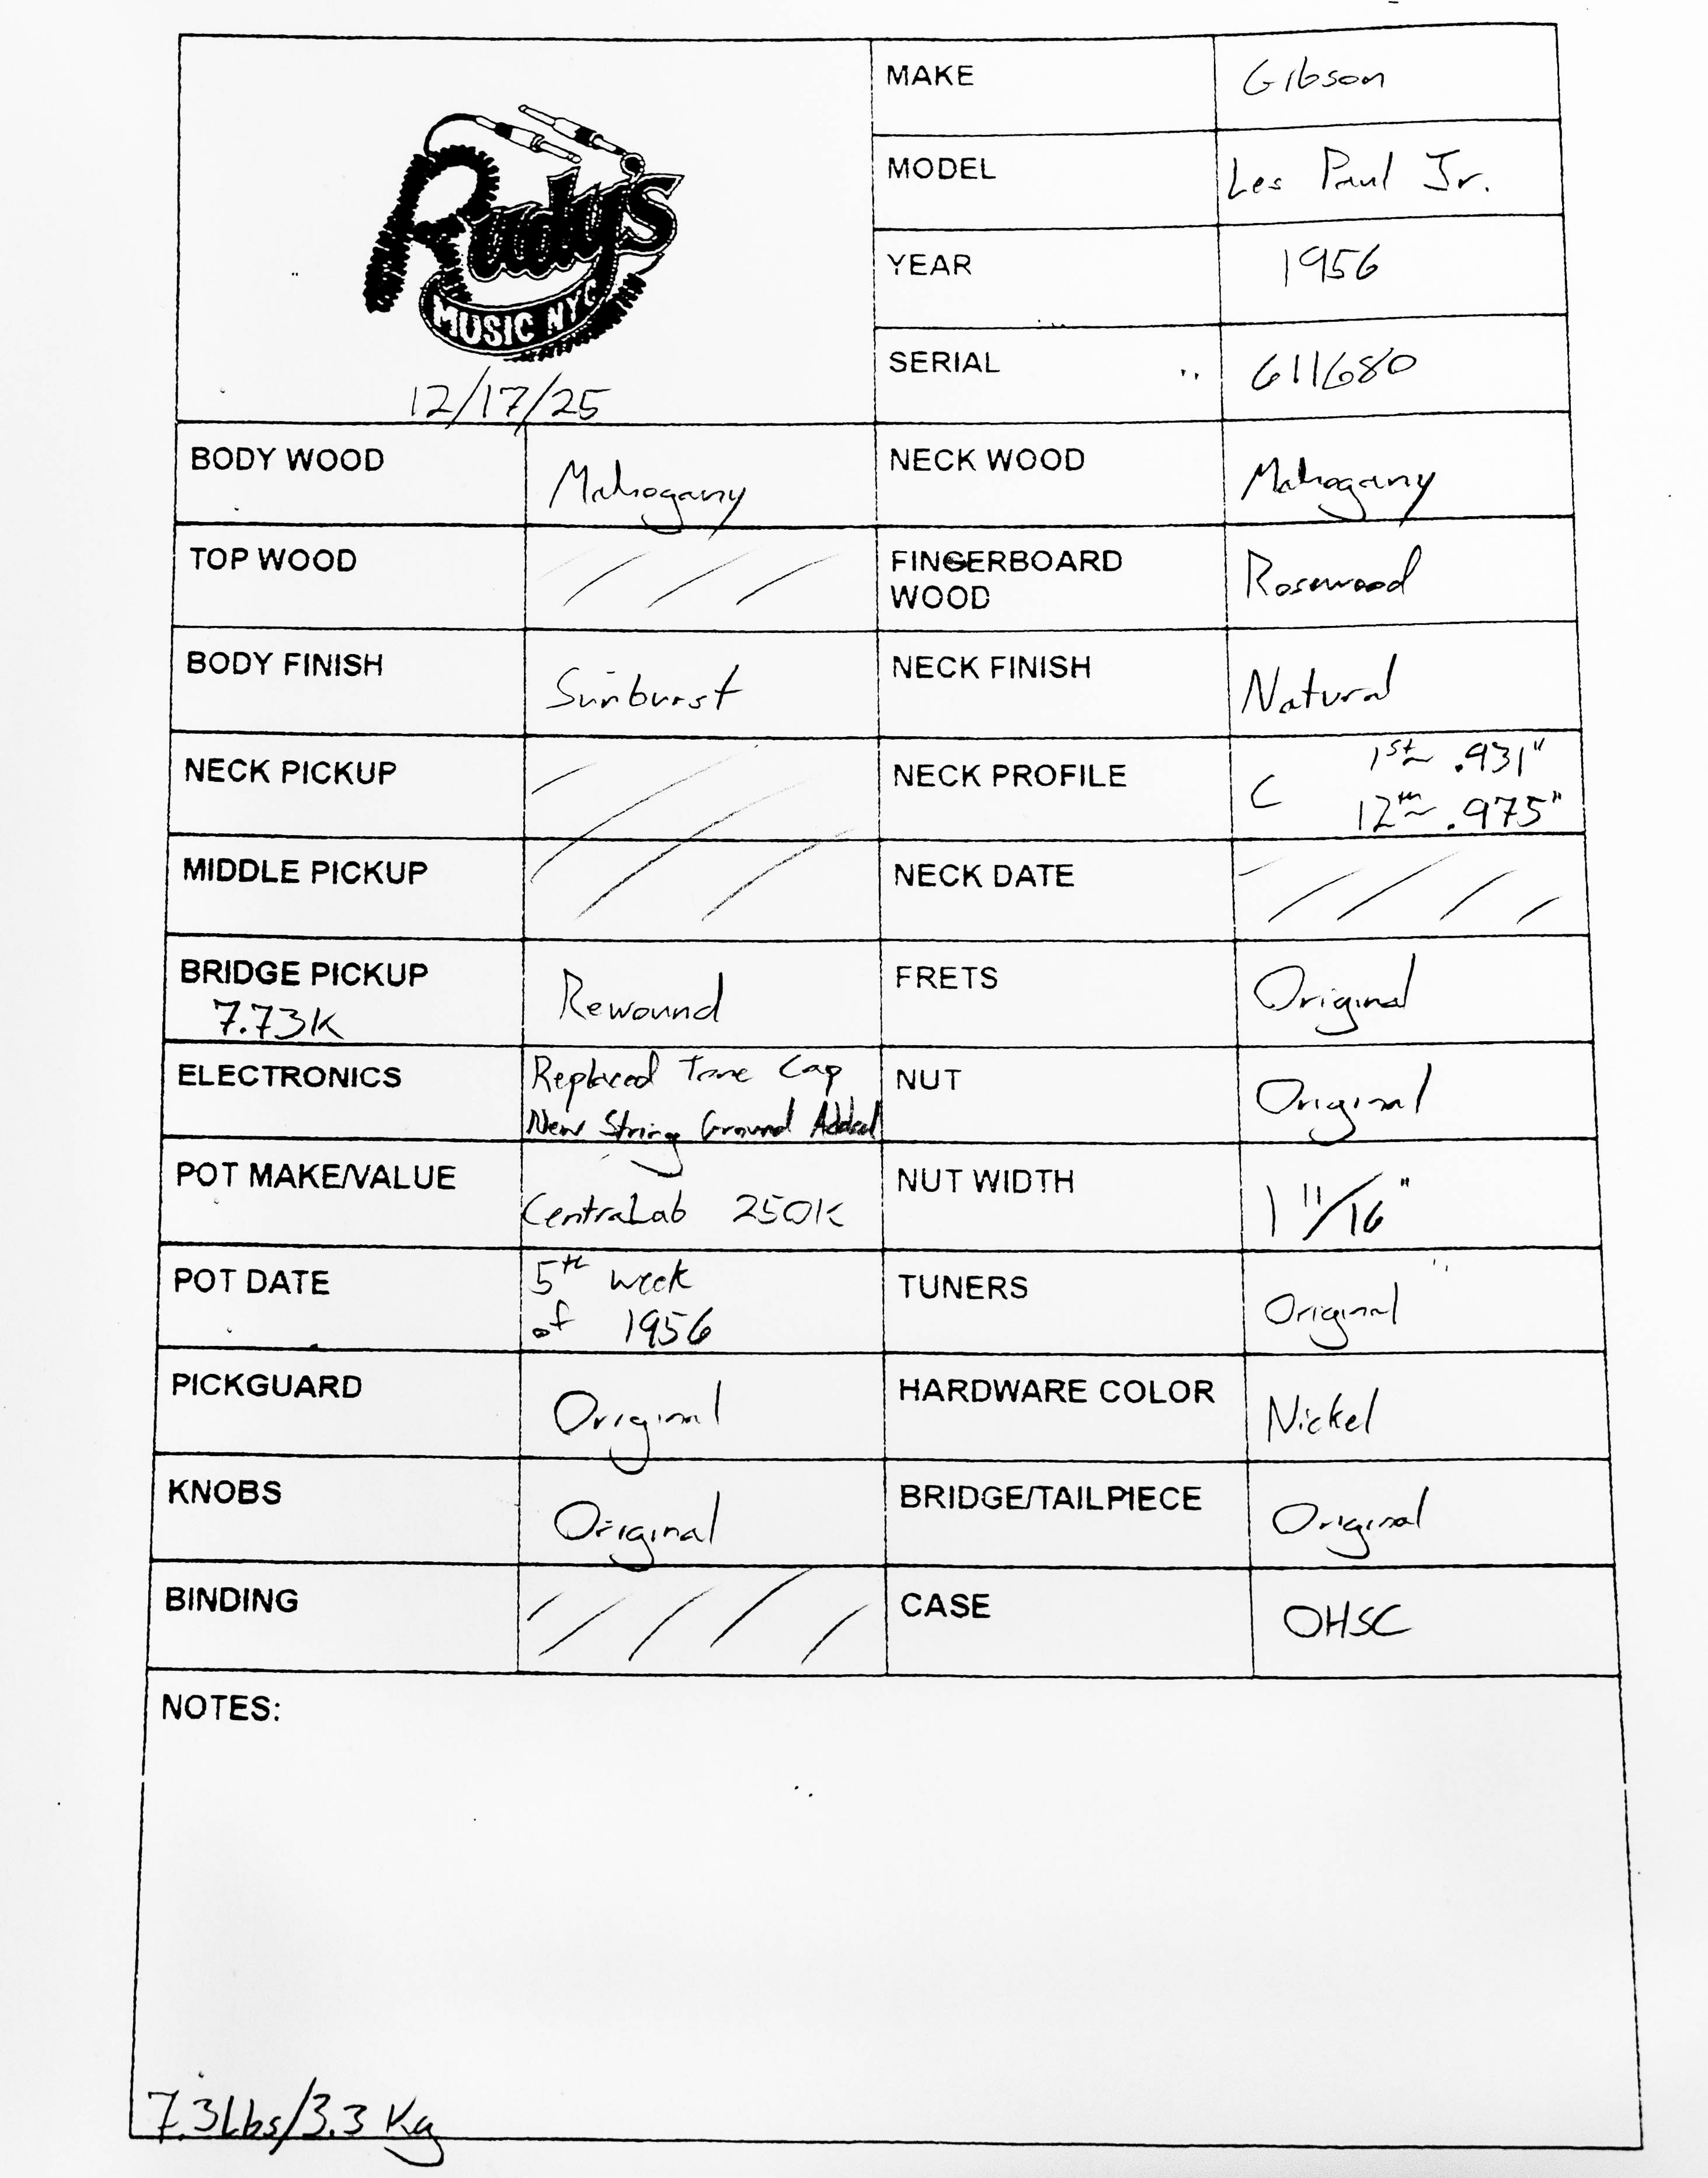 Rudy's
MUSIC NYC
12/17/25
MAKE Gibson
MODEL Les Paul Jr.
YEAR 1956
SERIAL 611680
BODY WOOD Mahogany
NECK WOOD Mahogany
TOP WOOD
FINGERBOARD
WOOD Rosewood
BODY FINISH Sunburst
NECK FINISH Natural
NECK PICKUP
NECK PROFILE C 1st ~ .931"
12th ~ .975"
MIDDLE PICKUP
NECK DATE
BRIDGE PICKUP
7.73K
Rewound
FRETS Original
ELECTRONICS Replaced Tone Cap
New String Ground Added
NUT Original
POT MAKE/VALUE CentraLab 250K
NUT WIDTH 1 11/16"
POT DATE 5th week
of 1956
TUNERS Original
PICKGUARD Original
HARDWARE COLOR Nickel
KNOBS Original
BRIDGE/TAILPIECE Original
BINDING
CASE OHSC
NOTES:
7.3Lbs/3.3 Kg